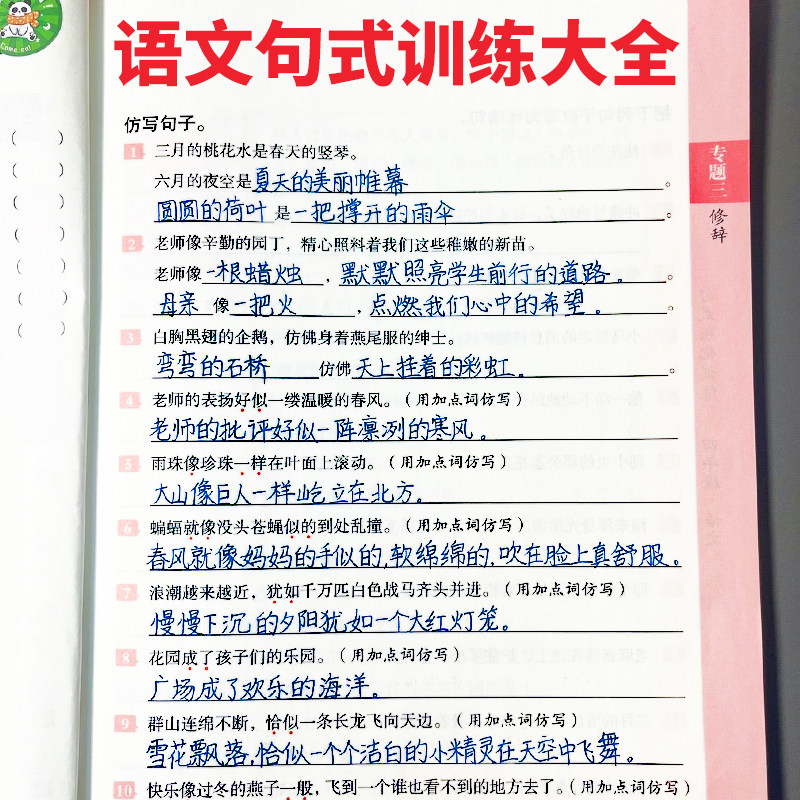 Come on!
语文句式训练大全
( )
( )
( )
( )
( )
( )
( )
专题三 修辞
仿写句子。
1 三月的桃花水是春天的竖琴。
六月的夜空是夏天的美丽帷幕。
圆圆的荷叶是一把撑开的雨伞。
2 老师像辛勤的园丁，精心照料着我们这些稚嫩的新苗。
老师像一根蜡烛，默默照亮学生前行的道路。。
母亲像一把火，点燃我们心中的希望。。
3 白胸黑翅的企鹅，仿佛身着燕尾服的绅士。
弯弯的石桥仿佛天上挂着的彩虹。。
4 老师的表扬好似一缕温暖的春风。(用加点词仿写)
老师的批评好似一阵凛冽的寒风。
5 雨珠像珍珠一样在叶面上滚动。(用加点词仿写)
大山像巨人一样屹立在北方。
6 蝙蝠就像没头苍蝇似的到处乱撞。(用加点词仿写)
春风就像妈妈的手似的,软绵绵的,吹在脸上真舒服。
7 浪潮越来越近，犹如千万匹白色战马齐头并进。(用加点词仿写)
慢慢下沉的夕阳犹如一个大红灯笼。
8 花园成了孩子们的乐园。(用加点词仿写)
广场成了欢乐的海洋。
9 群山连绵不断，恰似一条长龙飞向天边。(用加点词仿写)
雪花飘落,恰似一个个洁白的小精灵在天空中飞舞。
10 快乐像过冬的燕子一般，飞到一个谁也看不到的地方去了。(用加点词仿写)